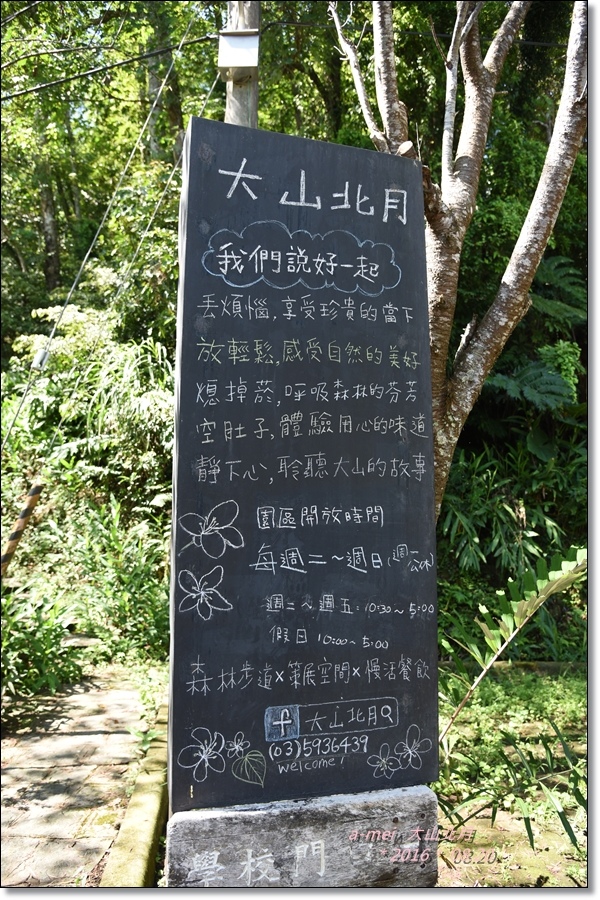 大山北月
我們說好一起
丟煩惱,享受珍貴的當下
放輕鬆,感受自然的美好
熄掉菸,呼吸森林的芬芳
空肚子,體驗用心的味道
靜下心,聆聽大山的故事
園區開放時間
每週二~週日(週一公休)
週二~週五:10:30~5:00
假日 10:00~5:00
森林步道×策展空間×慢活餐飲
f 大山北月
(03)5936439
welcome!
學校門
a-mei 大山北月
2016 08.20